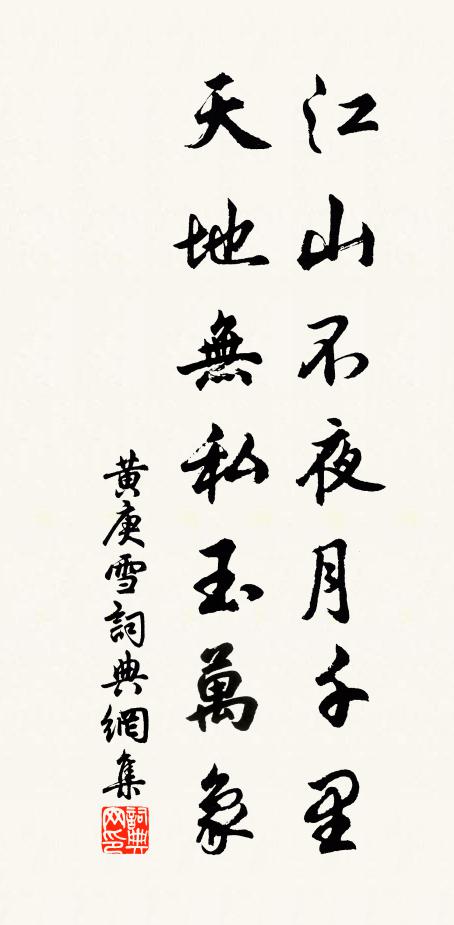 江山不夜月千里
天地無私玉萬象
黄庚雪詞典網集
詞典网印